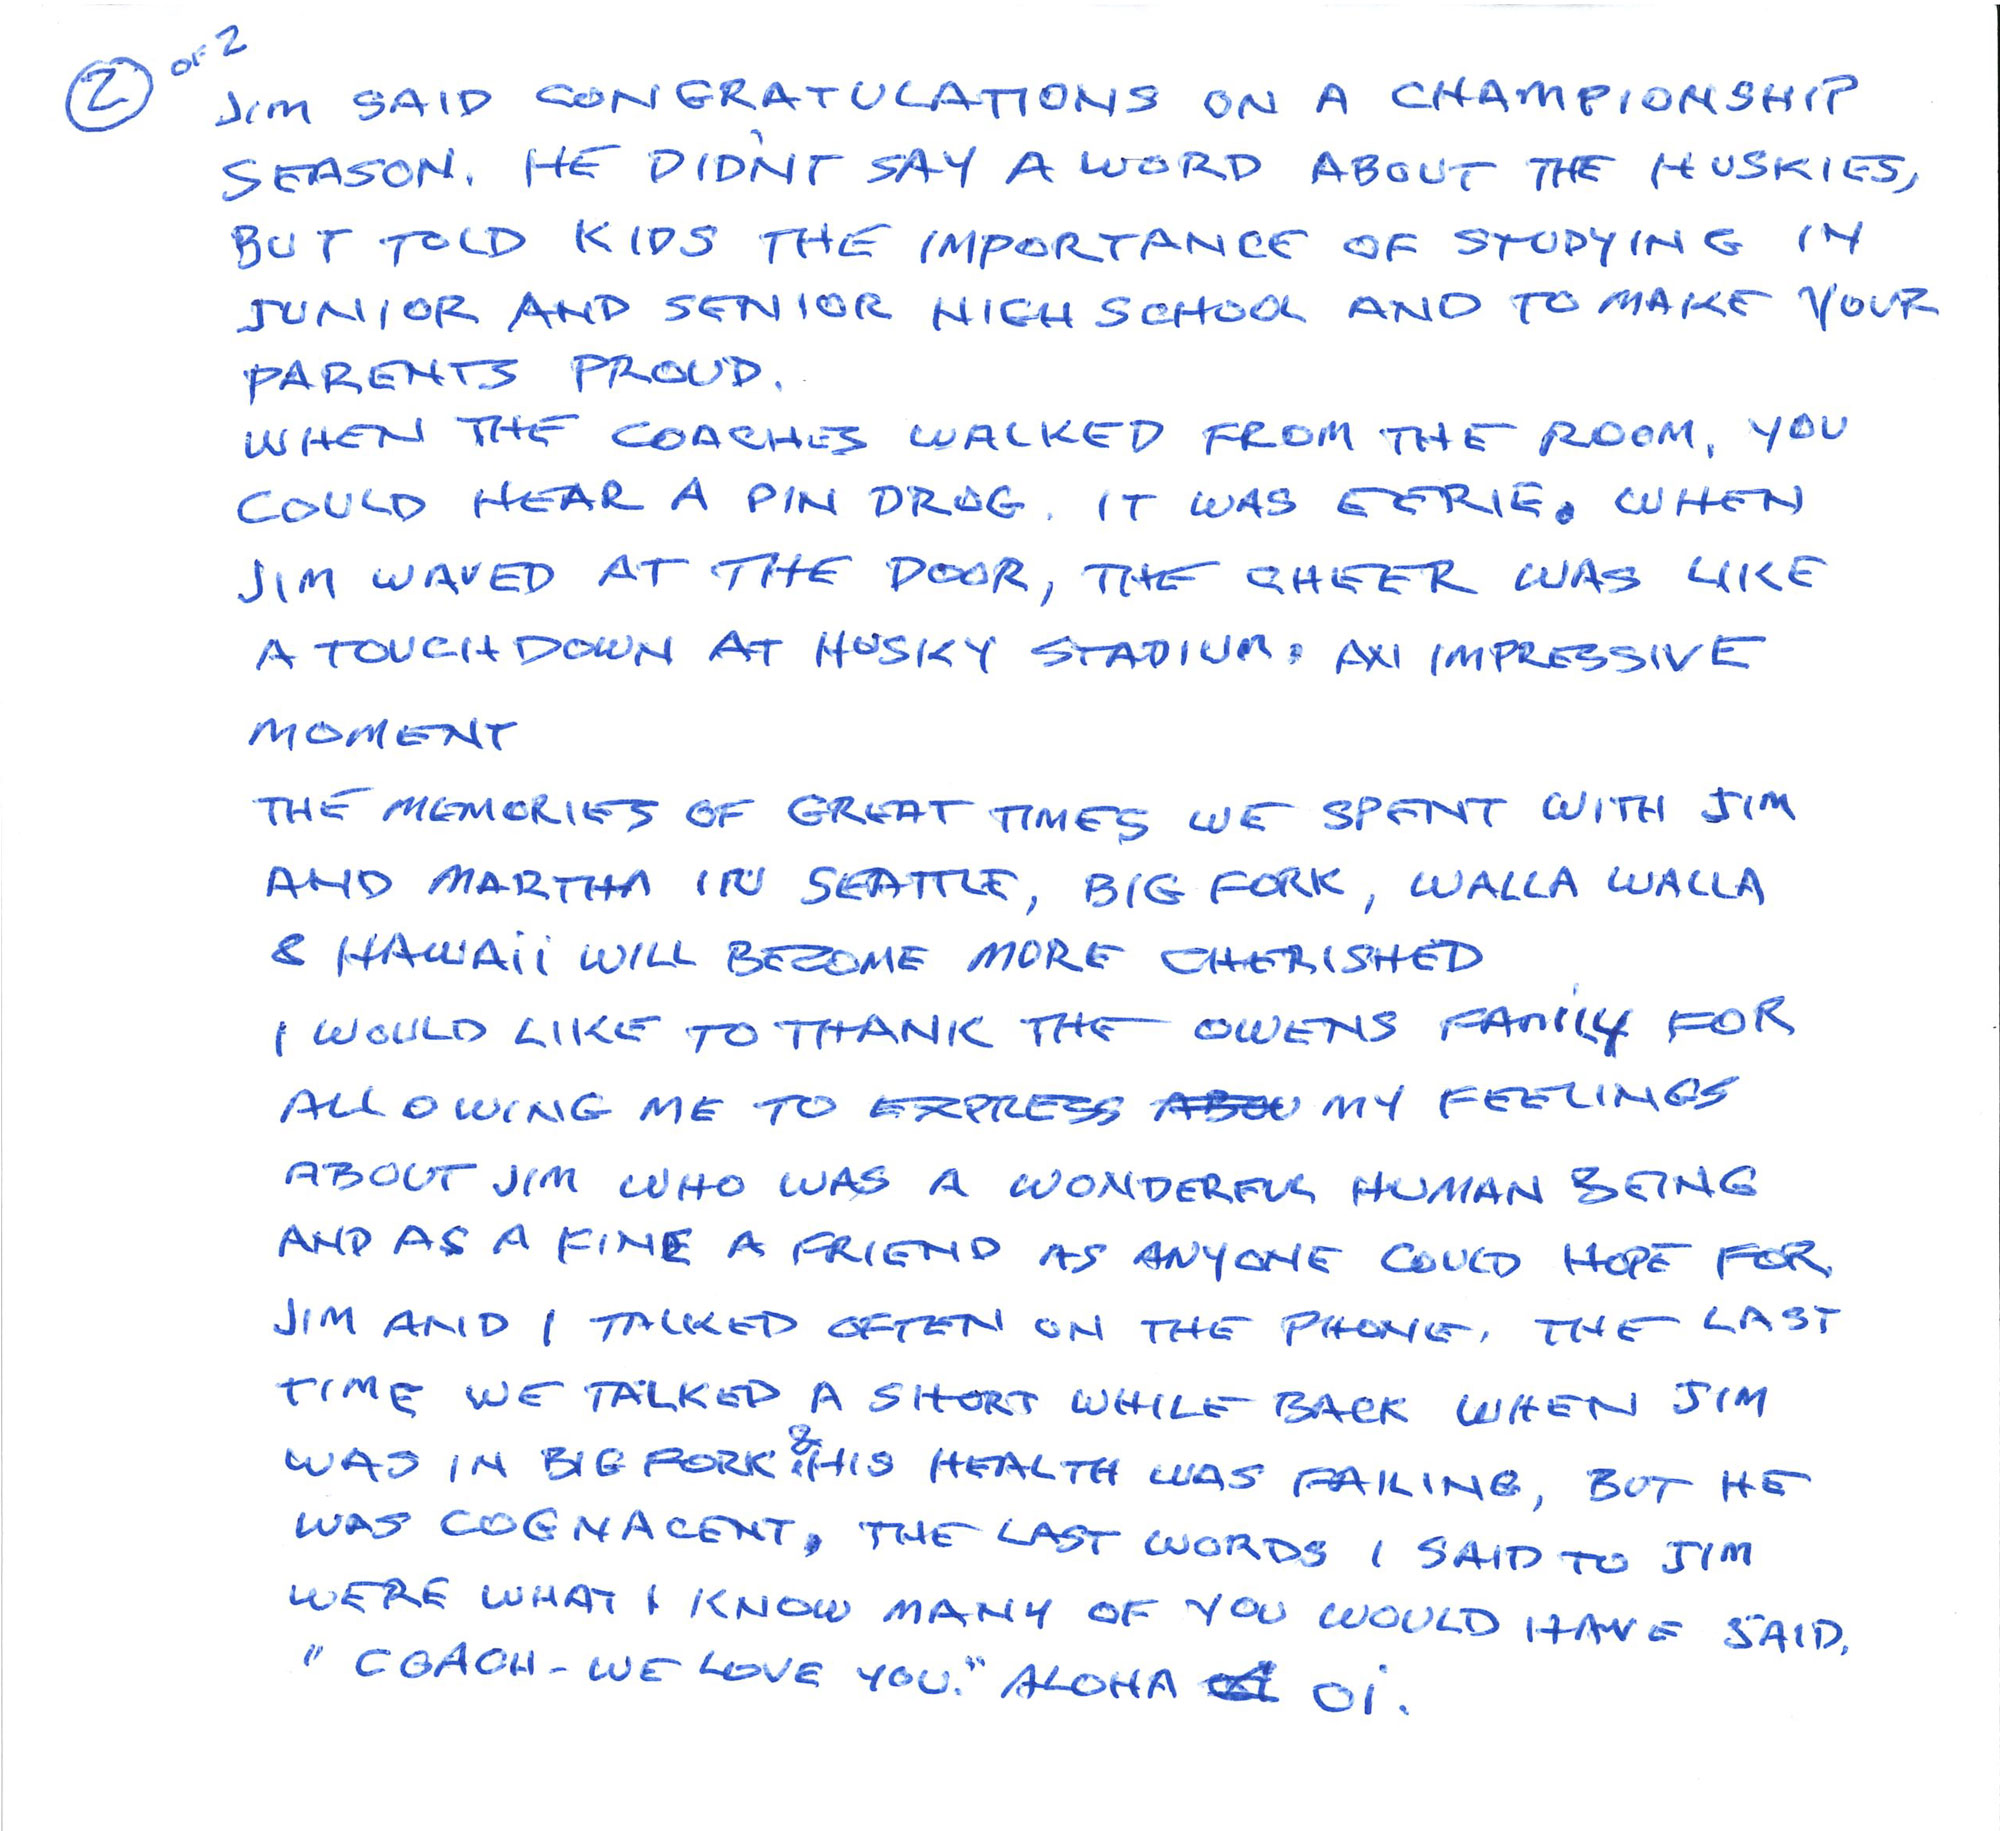 2 OF 2
JIM SAID CONGRATULATIONS ON A CHAMPIONSHIP
SEASON. HE DIDN'T SAY A WORD ABOUT THE HUSKIES,
BUT TOLD KIDS THE IMPORTANCE OF STUDYING IN
JUNIOR AND SENIOR HIGH SCHOOL AND TO MAKE YOUR
PARENTS PROUD.
WHEN THE COACHES WALKED FROM THE ROOM, YOU
COULD HEAR A PIN DROG. IT WAS EERIE. WHEN
JIM WAVED AT THE DOOR, THE CHEER WAS LIKE
A TOUCHDOWN AT HUSKY STADIUM. AN IMPRESSIVE
MOMENT
THE MEMORIES OF GREAT TIMES WE SPENT WITH JIM
AND MARTHA IN SEATTLE, BIG FORK, WALLA WALLA
& HAWAii WILL BECOME MORE CHERISHED
I WOULD LIKE TO THANK THE OWENS FAMily FOR
ALLOWING ME TO EXPRESS ABOU MY FEELINGS
ABOUT JIM WHO WAS A WONDERFUL HUMAN BEING
AND AS A FINE A FRIEND AS ANYONE COULD HOPE FOR
JIM AND I TALKED OFTEN ON THE PHONE. THE LAST
TIME WE TALKED A SHORT WHILE BACK WHEN JIM
WAS IN BIG FORK & HIS HEALTH WAS FAILING, BUT HE
WAS COGNACENT. THE LAST WORDS I SAID TO JIM
WERE WHAT I KNOW MANY OF YOU WOULD HAVE SAID.
" COACH - WE LOVE YOU." ALOHA Oi.